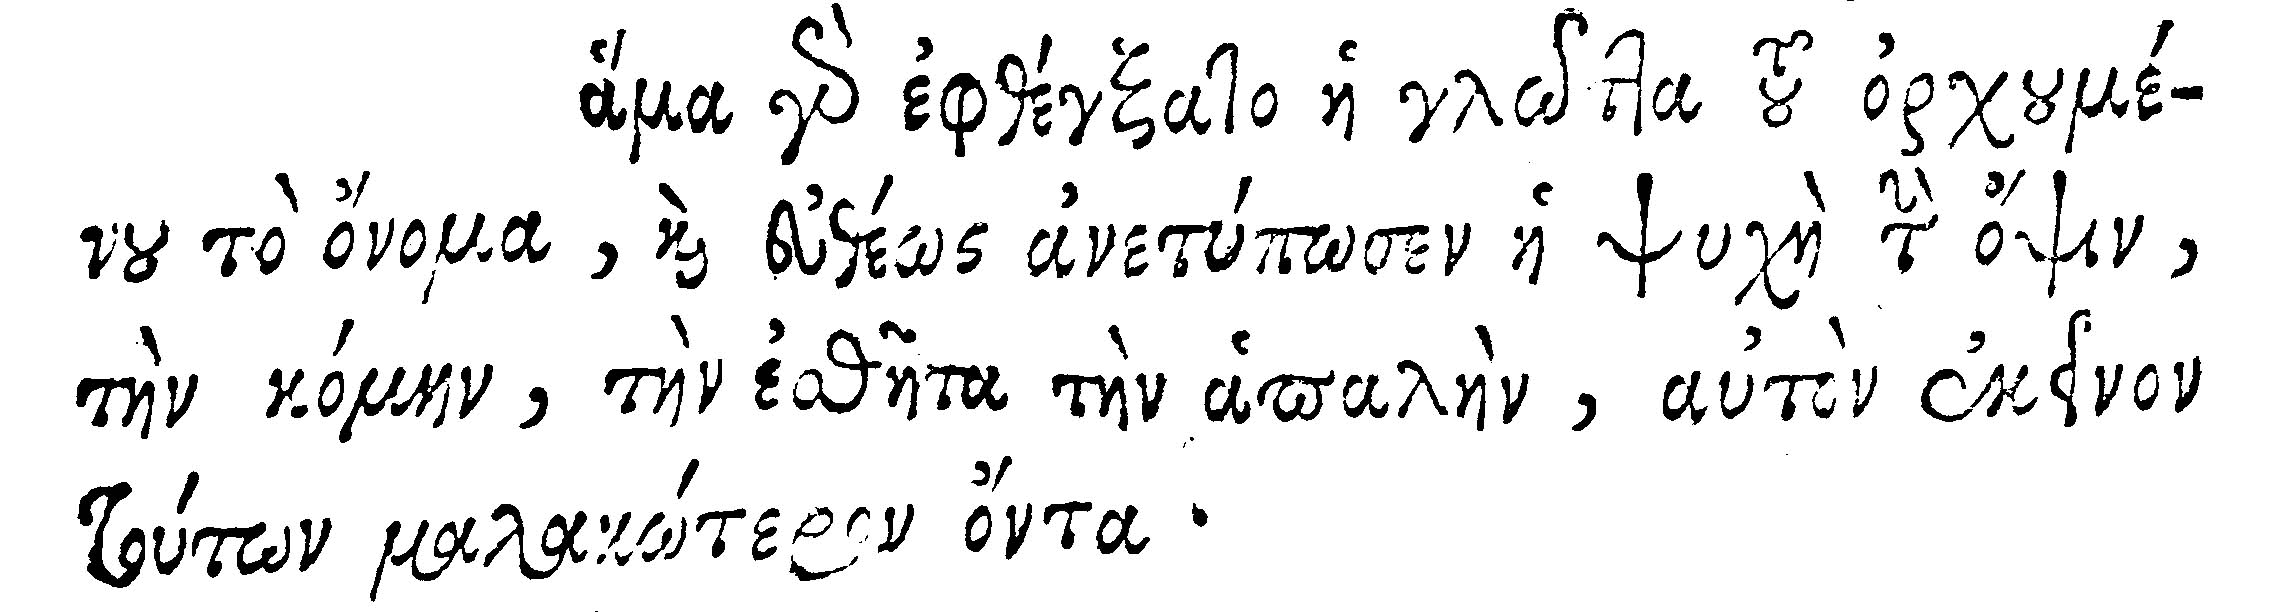 ἅμα γὰρ ἐφθέγξατο ἡ γλῶττα τοῦ ὀρχουμέ-
νου τὸ ὄνομα, καὶ εὐθέως ἀνετύπωσεν ἡ ψυχὴ τὴν ὄψιν,
τὴν κόμην, τὴν ἐσθῆτα τὴν ἁπαλὴν, αὐτὸν ἐκεῖνον
τούτων μαλακώτερον ὄντα.